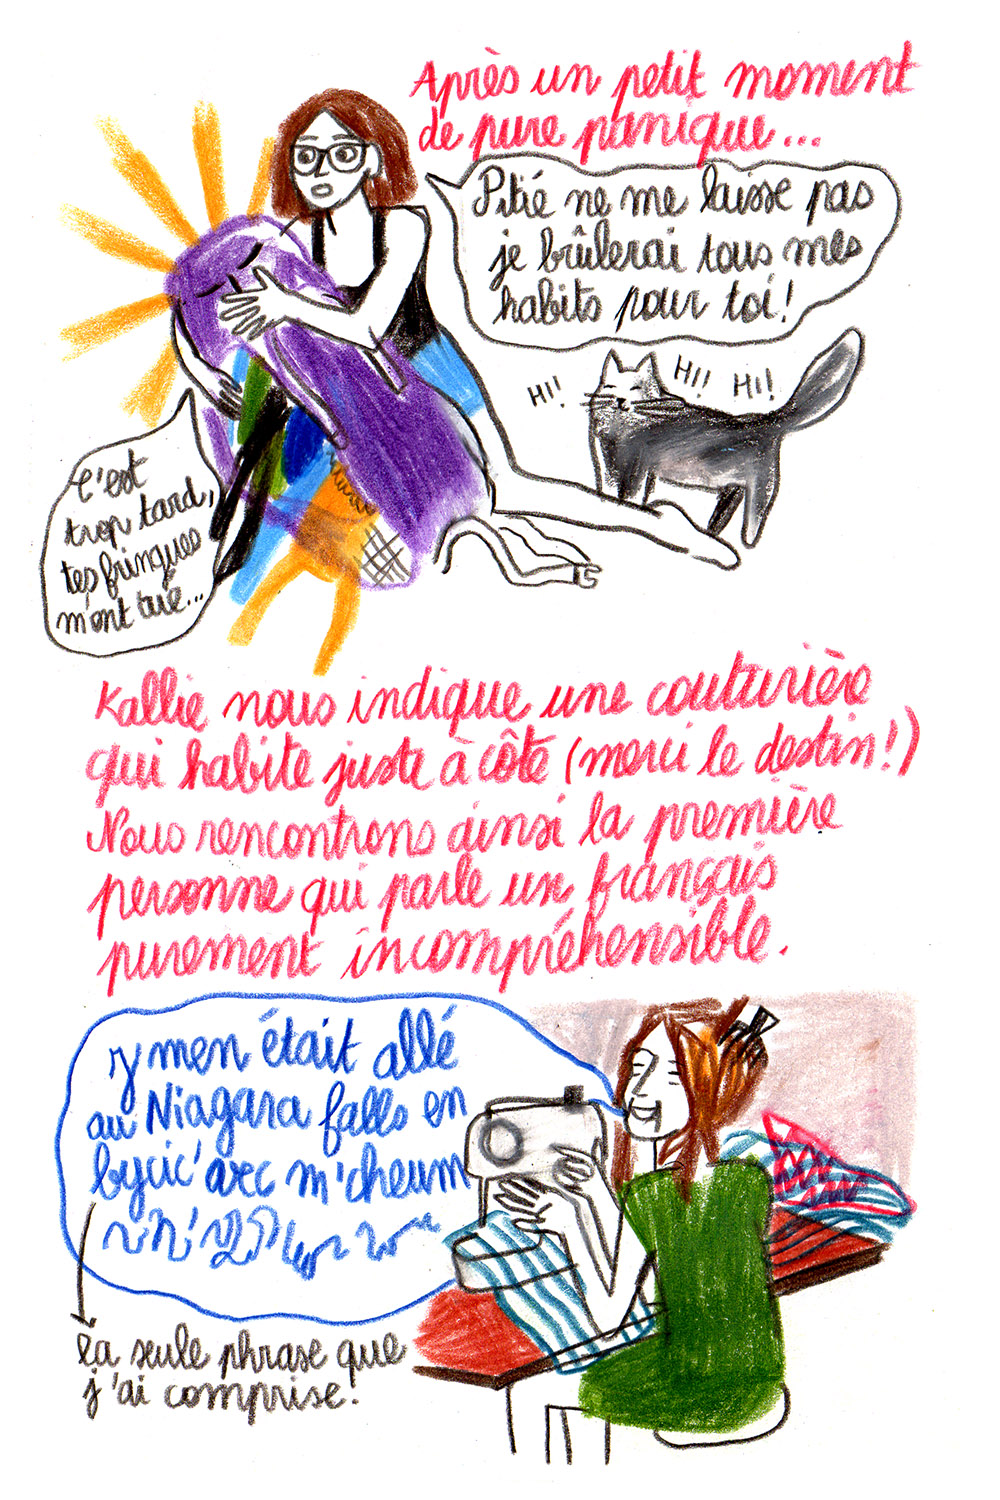 Après un petit moment
de pure panique...
Pitié ne me laisse pas
je brûlerai tous mes
habits pour toi!
HI!! HI!! HI!!
C'est
trop tard,
tes fringues
m'ont tué...
Kallie nous indique une couturière
qui habite juste à côté (merci le destin!)
Nous rencontrons ainsi la première
personne qui parle un français
purement incompréhensible.
y'men était allé
au Niagara falls en
bycic' avec m'cheum
la seule phrase que
j'ai comprise!